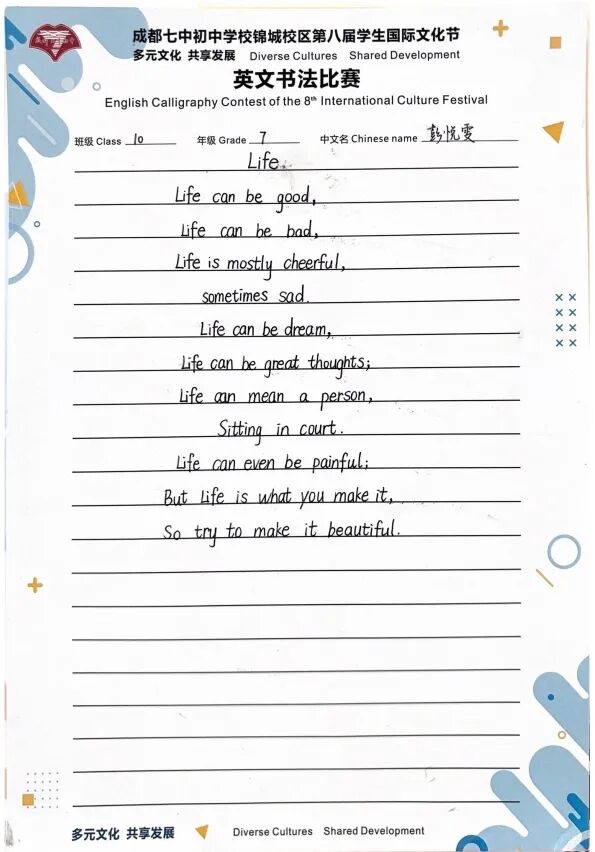 成都七中初中学校锦城校区第八届学生国际文化节
多元文化 共享发展 Diverse Cultures Shared Development
英文书法比赛
English Calligraphy Contest of the 8th International Culture Festival
班级 Class 10 年级 Grade 7 中文名 Chinese name 彭悦雯
Life.
Life can be good,
Life can be bad,
Life is mostly cheerful,
sometimes sad.
Life can be dream,
Life can be great thoughts;
Life can mean a person,
Sitting in court.
Life can even be painful;
But life is what you make it,
So try to make it beautiful.
多元文化 共享发展 Diverse Cultures Shared Development